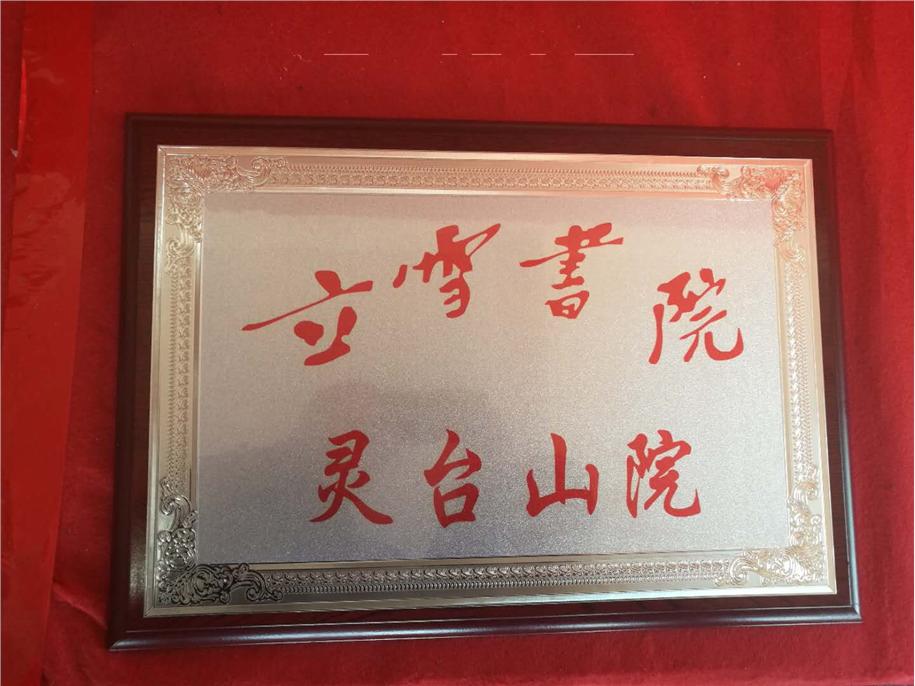 立雪書院
灵台山院